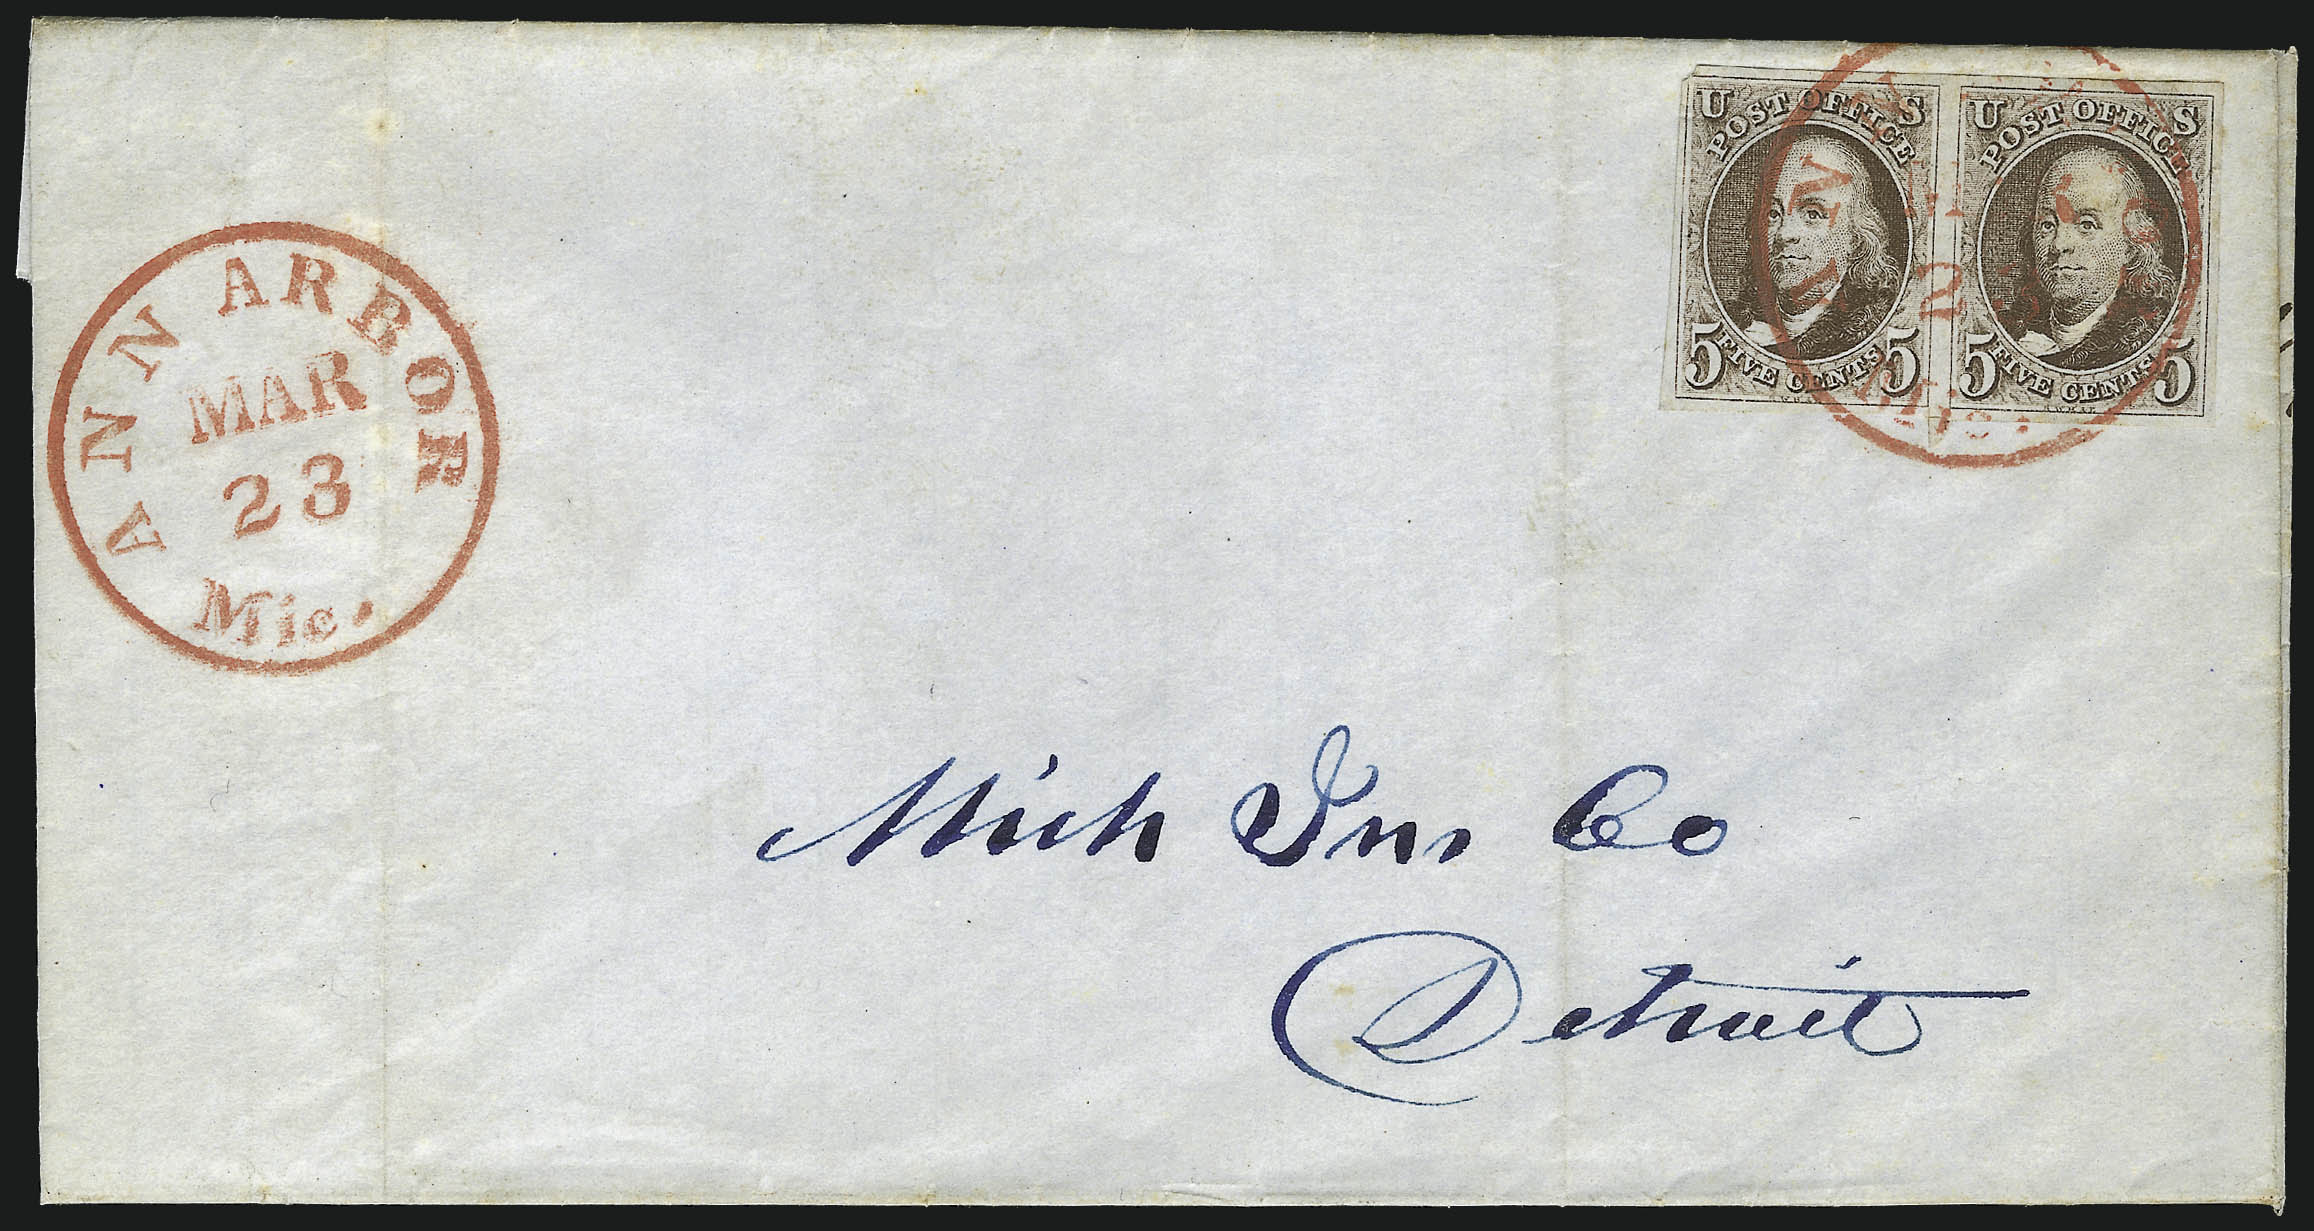 ANN ARBOR
MAR
23
Mic.
U S
POST OFFICE
5 FIVE CENTS 5
U S
POST OFFICE
5 FIVE CENTS 5
23
Mic.
Mich Ins Co
Detroit